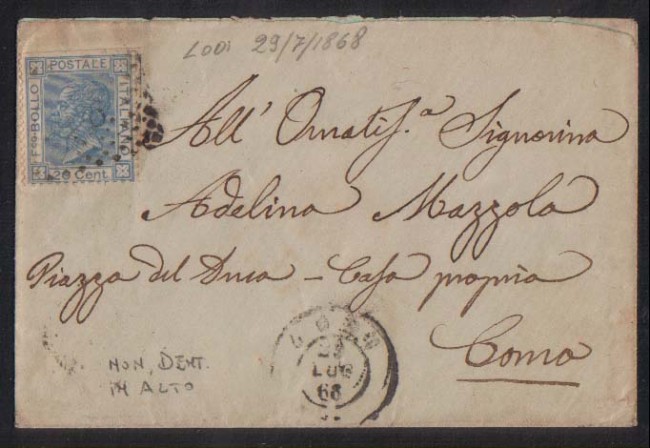 LODI 29/7/1868
Fco BOLLO POSTALE ITALIANO
20 Cent.
All' Ornatis.a Signorina
Adelina Mazzola
Piazza del Duca - Casa propria
Como
LODI
LUG
68
NON, DENT.
IN ALTO